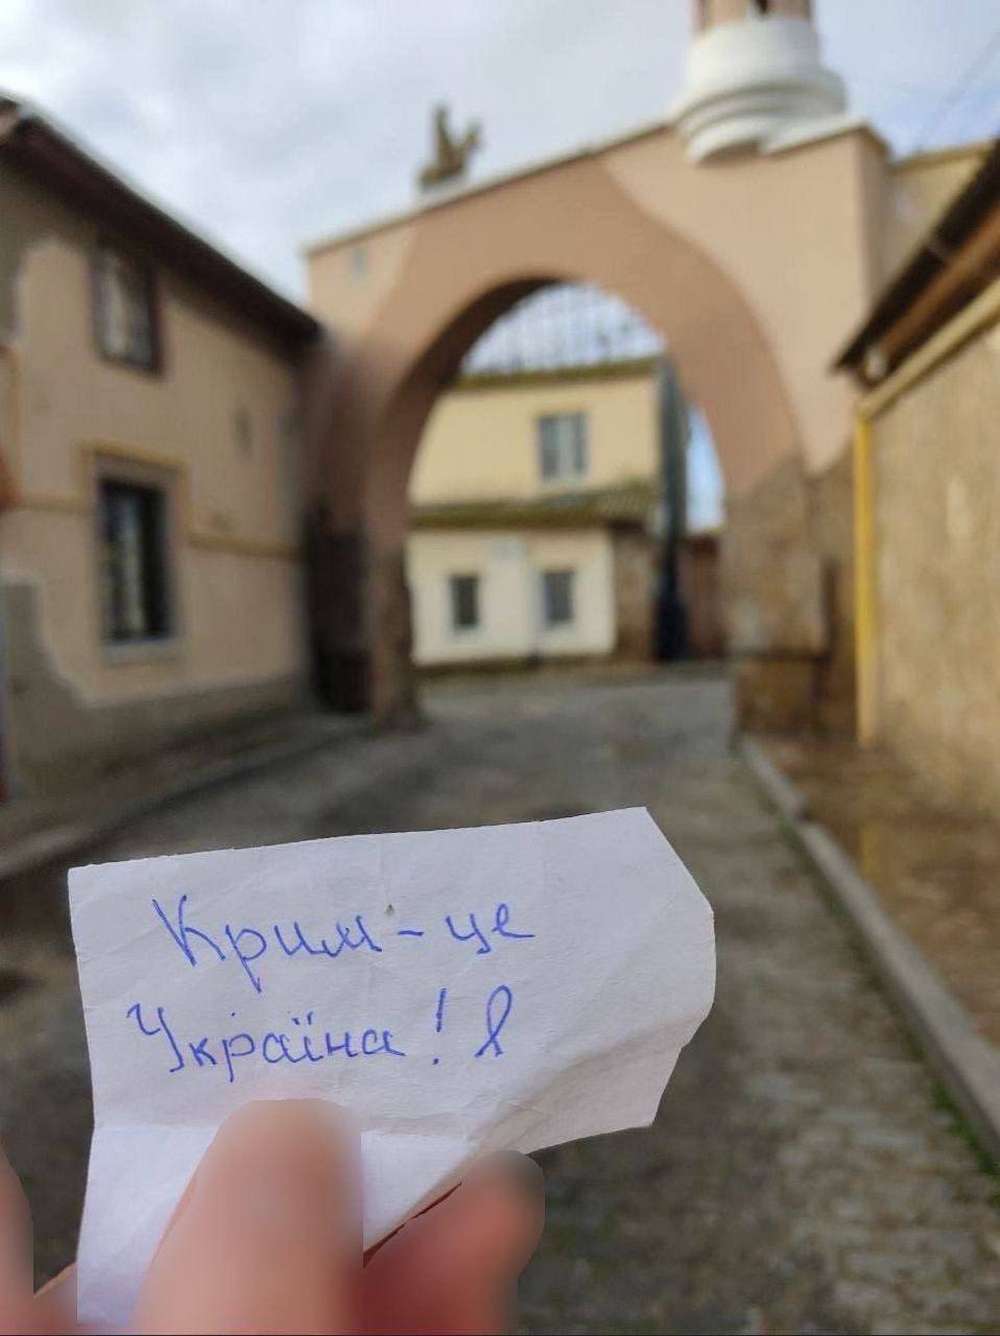 Крим - це
Україна!